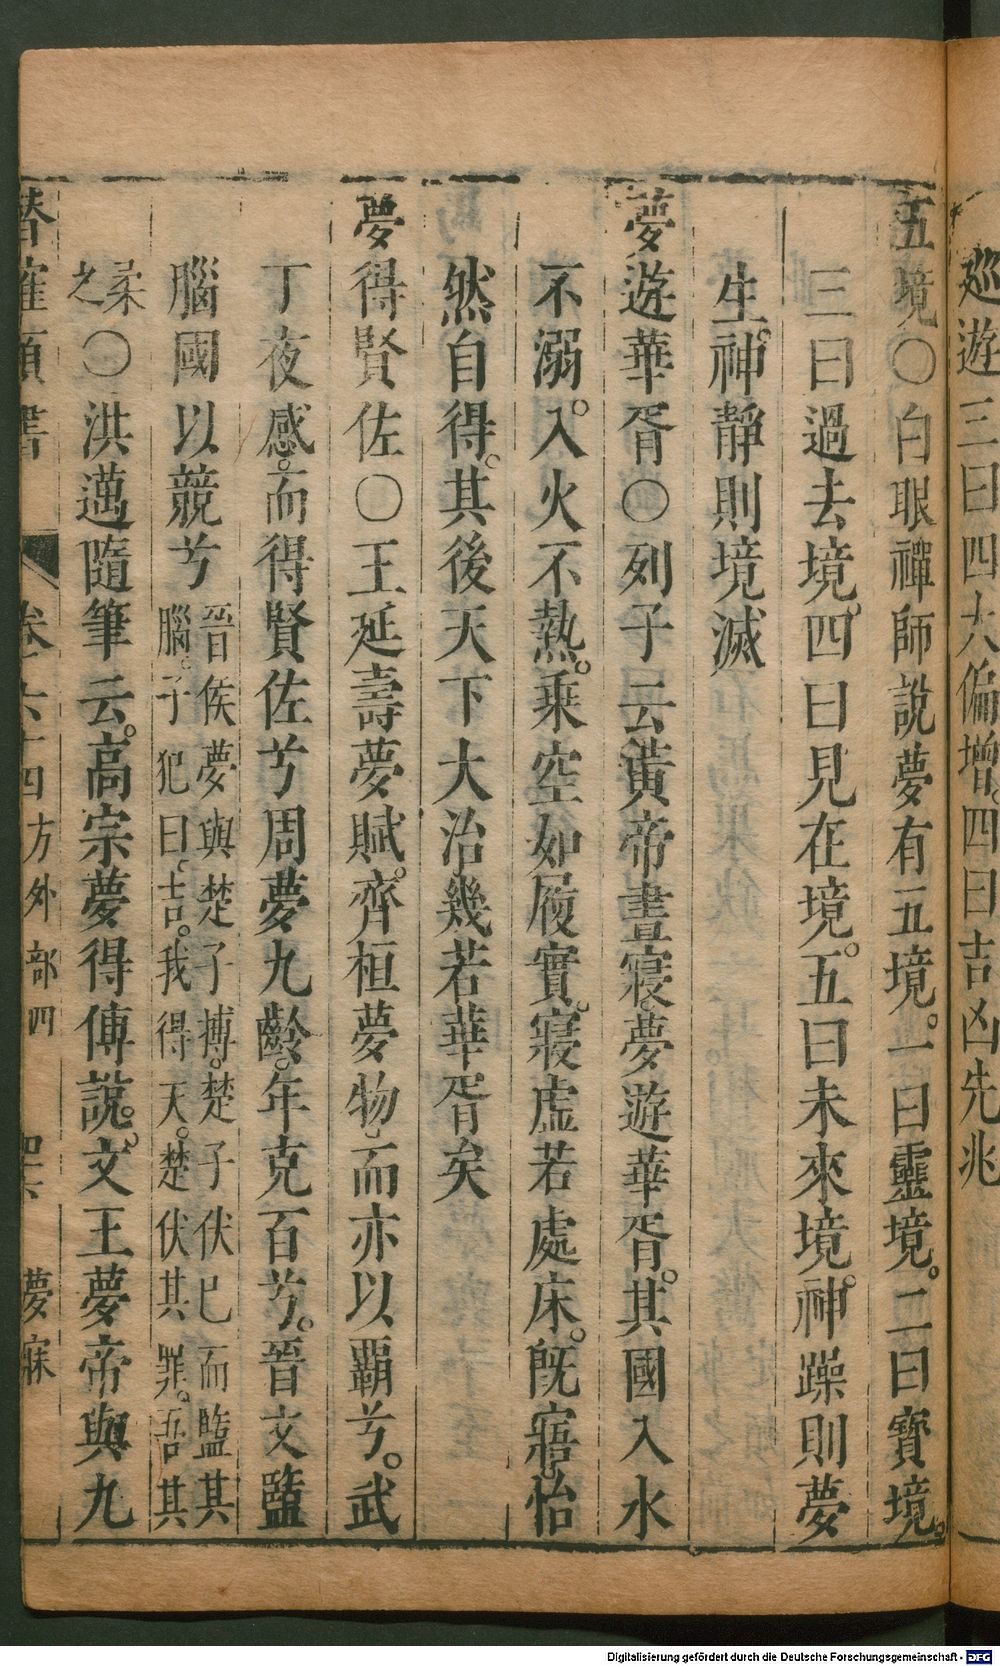 巡遊三曰四大偏增。四曰吉凶先兆
五境〇白眼禪師說夢有五境。一曰靈境。二曰寶境。
三曰過去境。四曰見在境。五曰未來境。神躁則夢
生。神靜則境滅
夢遊華胥〇列子云黃帝晝寢夢遊華胥。其國入水
不溺。入火不熱。乘空如履實。寢虛若處床。既寤怡
然自得。其後天下大治幾若華胥矣
夢得賢佐〇王延壽夢賦。齊桓夢物而亦以覇兮。武
丁夜感。而得賢佐兮周夢九齡。年克百兮。晉文盬
腦國以競兮晉侯夢與楚子搏。楚子伏已而盬其
腦。子犯曰。吉。我得天。楚伏其罪。吾其
柔之〇洪邁隨筆云。高宗夢得傅說。文王夢帝與九
潛確類書 卷六十四方外部四 夢寐
Digitalisierung gefördert durch die Deutsche Forschungsgemeinschaft - DFG